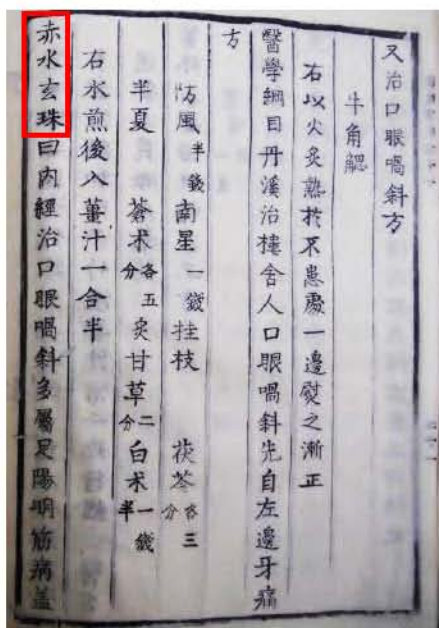 又治口眼喎斜方
牛角䚡
右以火炙熱於不患處一邊熨之漸正
醫學綱目丹溪治樓舍人口眼喎斜先自左邊牙痛
方
防風半錢南星一錢桂枝茯苓各三分
半夏蒼术各五分炙甘草二分白术一錢半
右水煎後入薑汁一合半
赤水玄珠曰內經治口眼喎斜多屬足陽明筋病蓋